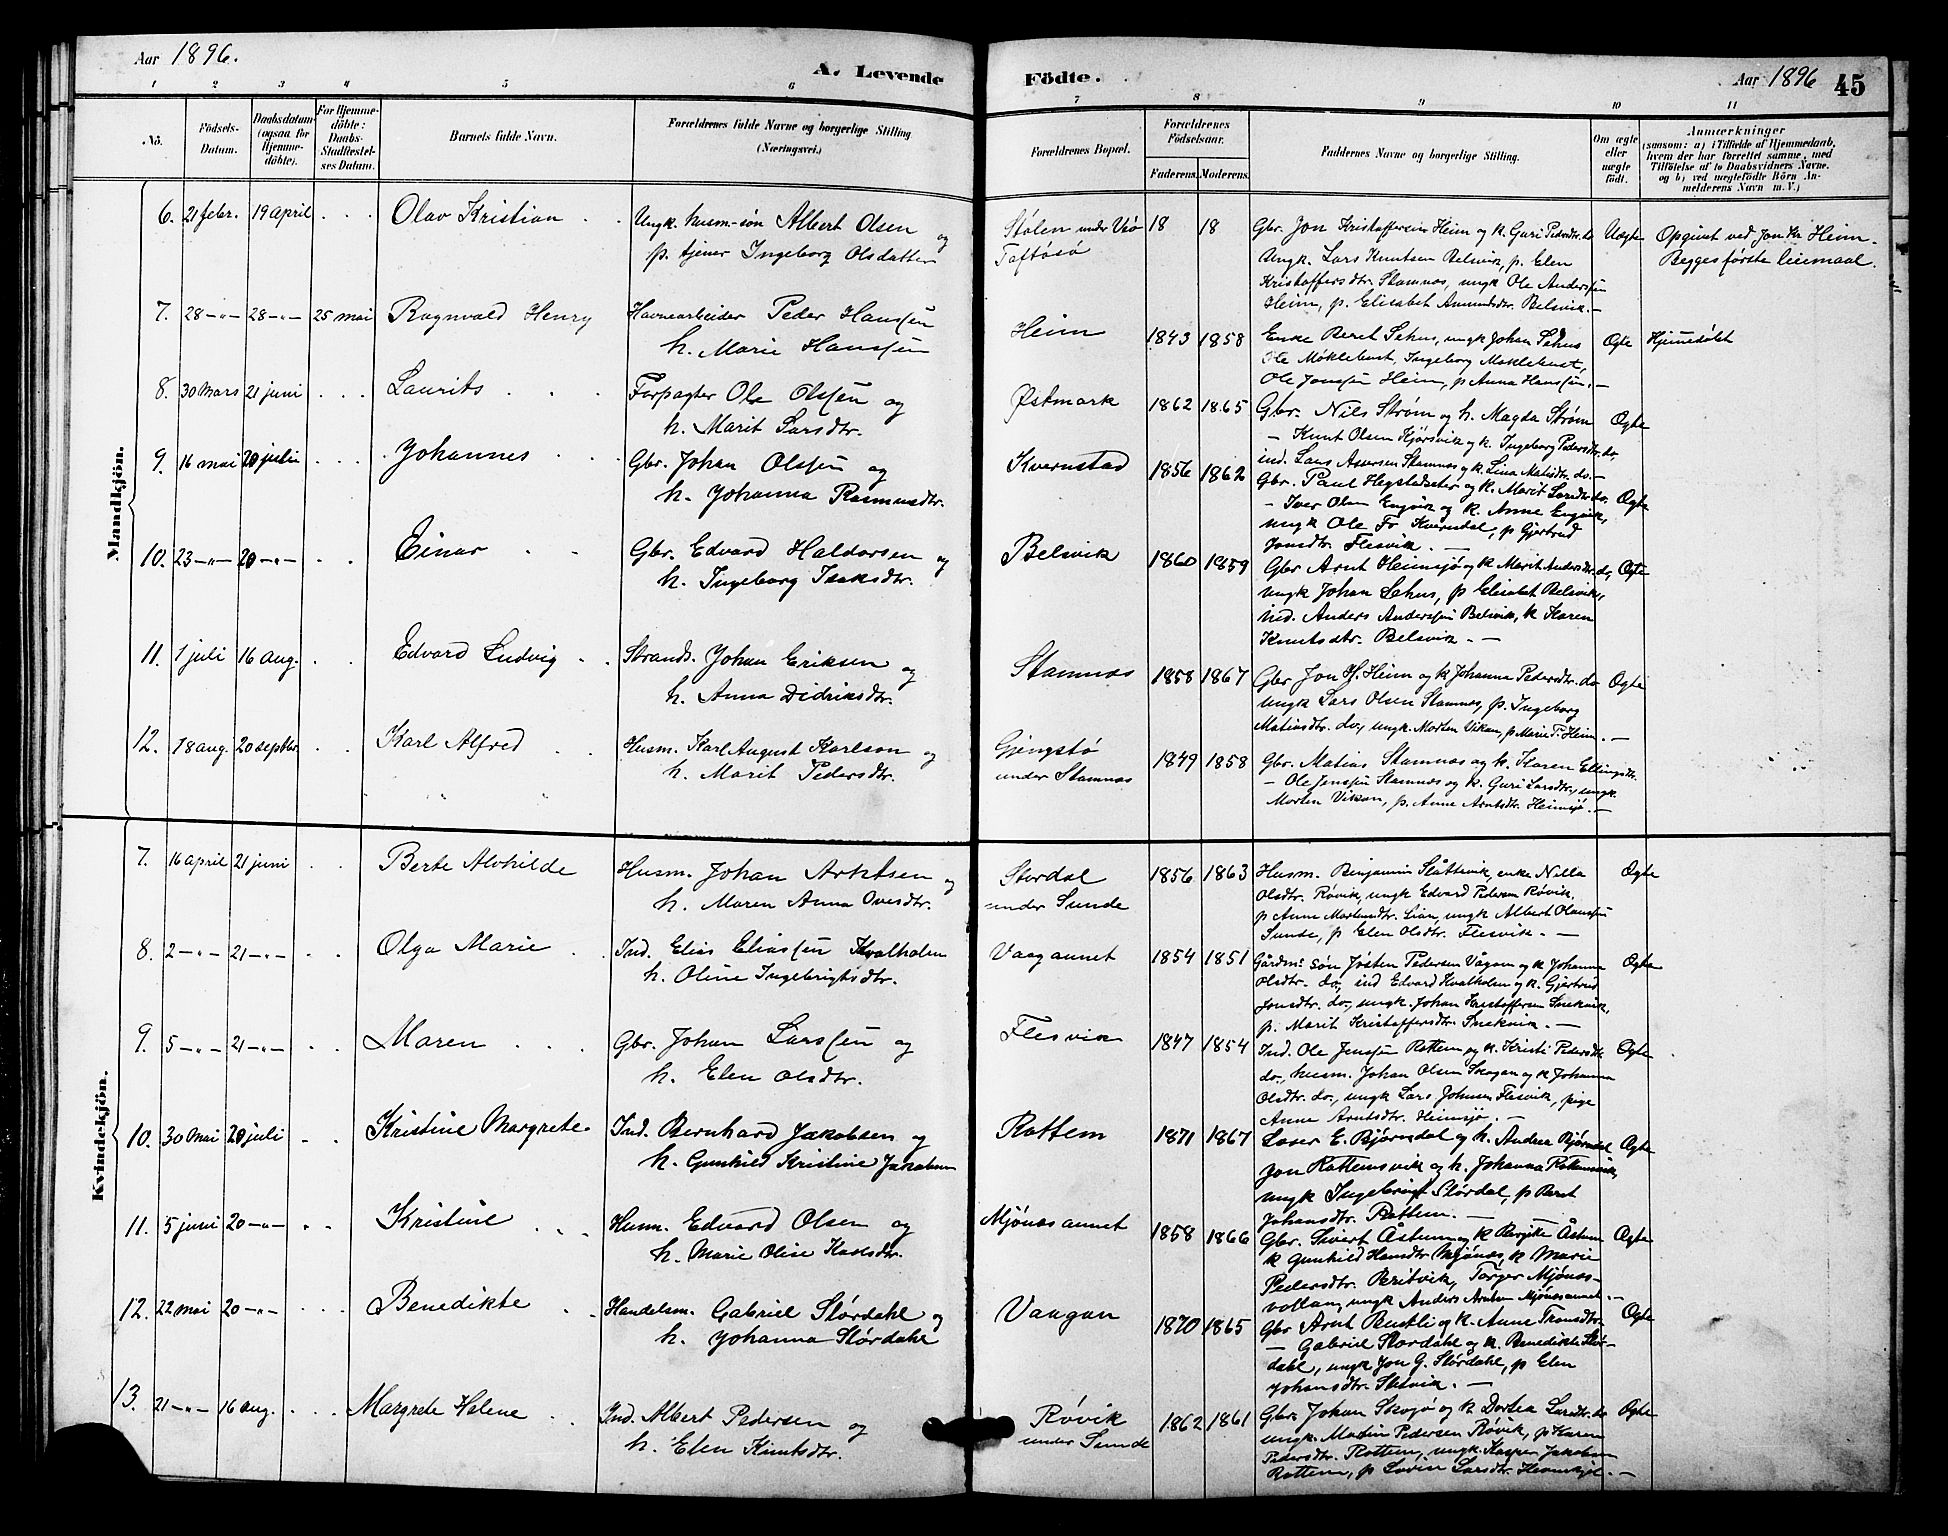 Aar 1896.
A. Levende
Födte.
Aar 1896
45
1 2 3 4 5 6 7 8 9 10 11
No.
Födsels-Datum.
Daabsdatum (ogsaa for Hjemme-döbte).
For Hjemme-döbte: Daabs-Stadfæstel-ses Datum.
Barnets fulde Navn.
Forældrenes fulde Navne og borgerlige Stilling (Næringsvei.)
Forældrenes Bopæl.
Forældrenes Födselsaar.
Faderens. Moderens.
Faddernes Navne og borgerlige Stilling.
Om ægte eller uægte födt.
Anmærkninger
(saasom: a) i Tilfælde af Hjemmedaab,
hvem der har forrettet samme, med
Tilföielse af to Daabsvidners Navne.
og b) ved uægtefödte Börn An-
melderens Navn m. V.)
Mandkjön.
6. 21 febr. 19 april Olav Kristian Ungk. husm-søn Albert Olsen og
p. tjener Ingeborg Olsdatter
Stølen under
Taftøsø
18 18
Gbr. Jon Kristoffersen Heim og k. Guri Pedersdtr. do
Ungk. Lars Knutsen Belsvik, p. Elen
Kristoffersdtr. Stamnæs, ungk Ole Anderssen
Heim, p. Elisabet Belsvik. —
Uægte
Opgivet ved Jon Kr Heim.
Begges første leiemaal.
7. 28 -"- 28 -"- 25 mai Ragnvald Henry Havnearbeider Peder Hanssen
h. Marie Hanssen
Heim 1843 1858
Enke Beret Sehus, ungk Johan Sehus
Ole Møklebust, Ingeborg Møklebust,
Ole Jonssen Heim, p Anna Hanssen. —
Ægte Hjemmedøbt
8. 30 Mars 21 juni Laurits Forpagter Ole Olssen og
h. Marit Larsdtr.
Østmark 1862 1865
Gbr. Nils Strøm og h. Magda Strøm
— Knut Olsen Kjørsvik og k. Ingeborg Pedersdtr. do,
ind. Lars Assersen Stamnæs og k. Lina Matisdtr. do. —
Ægte
9. 16 mai 20 juli Johannes Gbr. Johan Olssen og
h. Johanna Rasmusdtr.
Kvernstad 1856 1862
Gbr. Paul Hegstadseter og k. Marit Larsdtr. do.
— Iver Olsen Engvik og k. Anne Engvik,
ungk Ole Fr Kverndal, p Gjertrud
Jonsdtr. Flesvik. —
Ægte
10. 23 -"- 20 -"- Einar Gbr. Edvard Haldorsen og
h. Ingeborg Isaksdtr.
Belsvik 1860 1859
Gbr Arnt Heimsjø og k Marit Andersdtr. do,
ungk Johan Sehus, p Elisabet Belsvik,
ind. Anders Anderssen Belsvik, k Karen
Knutsdtr. Belsvik. —
Ægte
11. 1 juli 16 aug. Edvard Ludvig Strands. Johan Eriksen og
h. Anna Didriksdtr.
Stamnæs 1858 1867
Gbr Jon H. Heim og k Johanna Pedersdtr. do
ungk Lars Olsen Stamnæs, p. Ingeborg
Matiasdtr. do, ungk. Morten Vikan, p Marie T. Heim. —
Ægte
12. 18 aug. 20 septbr. Karl Alfred Husm. Karl August Karlson og
h. Marit Pedersdtr.
Gjengstø
under Stamnæs
1849 1858
Gbr. Matias Stamnæs og h. Karen Ellingsdtr.
— Ole Jenssen Stamnæs og k. Guri Larsdtr, ungk.
Morten Vikan, p. Anne Arntsdtr. Heimsjø. —
Kvindekjön.
7. 16 april 21 juni Berte Alvhilde Husm. Johan Arntsen og
h. Maren Anna Ovesdtr.
Stordal
under Sunde
1856 1863
Husm. Benjamin Slåttavik, enke Nilla
Olsdtr. Røvik, ungk Edvard Pedersen Røvik,
p Anne Mortensdtr. Lian, ungk Albert Olaussen
Sunde, p Elen Olsdtr. Flesvik. —
Ægte
8. 2 -"- 21 -"- Olga Marie Ind. Elias Eliassen Kvalholm
h. Oline Ingebrigtsdtr.
Vaagannet 1854 1851
Gårdm. søn Jøsten Pedersen Vågan og k Johanna
Olsdtr. do, ind Edvard Kvalholm og k. Gjertrud
Jonsdtr. do, ungk. Johan Kristoffersen Snekvik,
p. Marit Kristoffersdtr. Snekvik. —
Ægte
9. 5 -"- 21 -"- Maren Gbr. Johan Larssen og
h. Elen Olsdtr.
Flesvik 1847 1854
Ind. Ole Jenssen Rottem og k. Kristi Pedersdtr.
do, husm. Johan Olsen Skogan og k Johanna
Olsdtr. do, ungk Lars Johnsen Flesvik, pige
Anne Arntsdtr. Heimsjø. —
Ægte
10. 30 Mai 20 juli Kristine Margrete Ind. Bernhard Jakobsen og
h. Gunhild Kristine Jakobsen
Rottem 1871 1867
Loser E. Bjørndal og h. Andrea Bjørndal
Jon Rottemsvik og h. Johanna Rottemsvik,
ungk Ingebrigt Størdal, p Beret
Johansdtr. Rottem. —
Ægte
11. 5 juni 20 -"- Kristine Husm. Edvard Olsen og
h. Marie Olise Karlsdtr.
Mjønæsannet 1858 1866
Gbr. Sivert Åstum og k Bergitte Åstum
k Gunhild Hansdtr Mjønæs, k Marie
Pedersdtr. Beritvik, Torger Mjønæs-
vollan, ungk Anders Arntsen Mjønæsannet. —
Ægte
12. 22 mai 20 -"- Benedikte Handelsm. Gabriel Størdahl og
h. Johanna Størdahl
Vaagan 1870 1865
Gbr Arnt Bustli og k. Anne Tronsdtr.
— Gabriel Størdahl og k. Benedikte Stør-
dahl, ungk Jon G. Størdahl, p Elen
Johansdtr.
Ægte
13. 21 -"- 16 aug. Margrete Helene Ind. Albert Pedersen og
h. Elen Knutsdtr.
Røvik
under Sunde
1862 1861
Gbr. Johan Skogø og k Dortea Larsdtr. do
ungk. Martin Pedersen Røvik, p Karen
Pedersdtr. Rottem, ungk. Kasper Jakobsen
Rottem, p Lovise Larsdtr.
Ægte